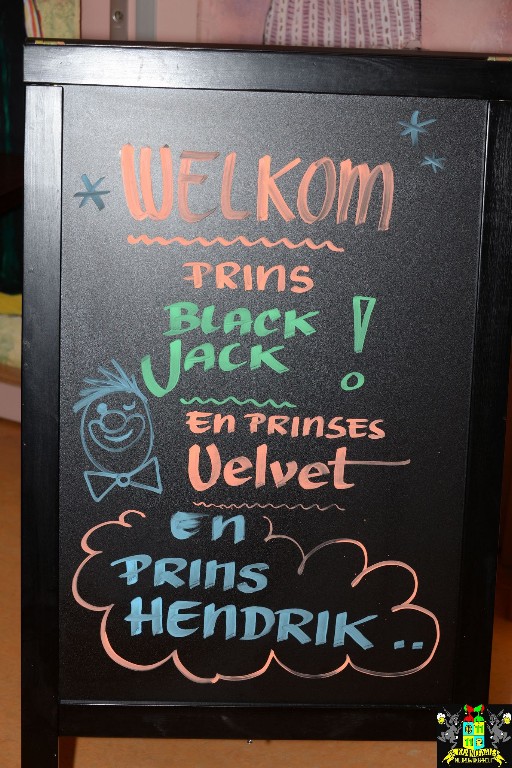 WELKOM
PRINS
BLACK
JACK !
EN PRINSES
Velvet
en
PRINS
HENDRIK ..